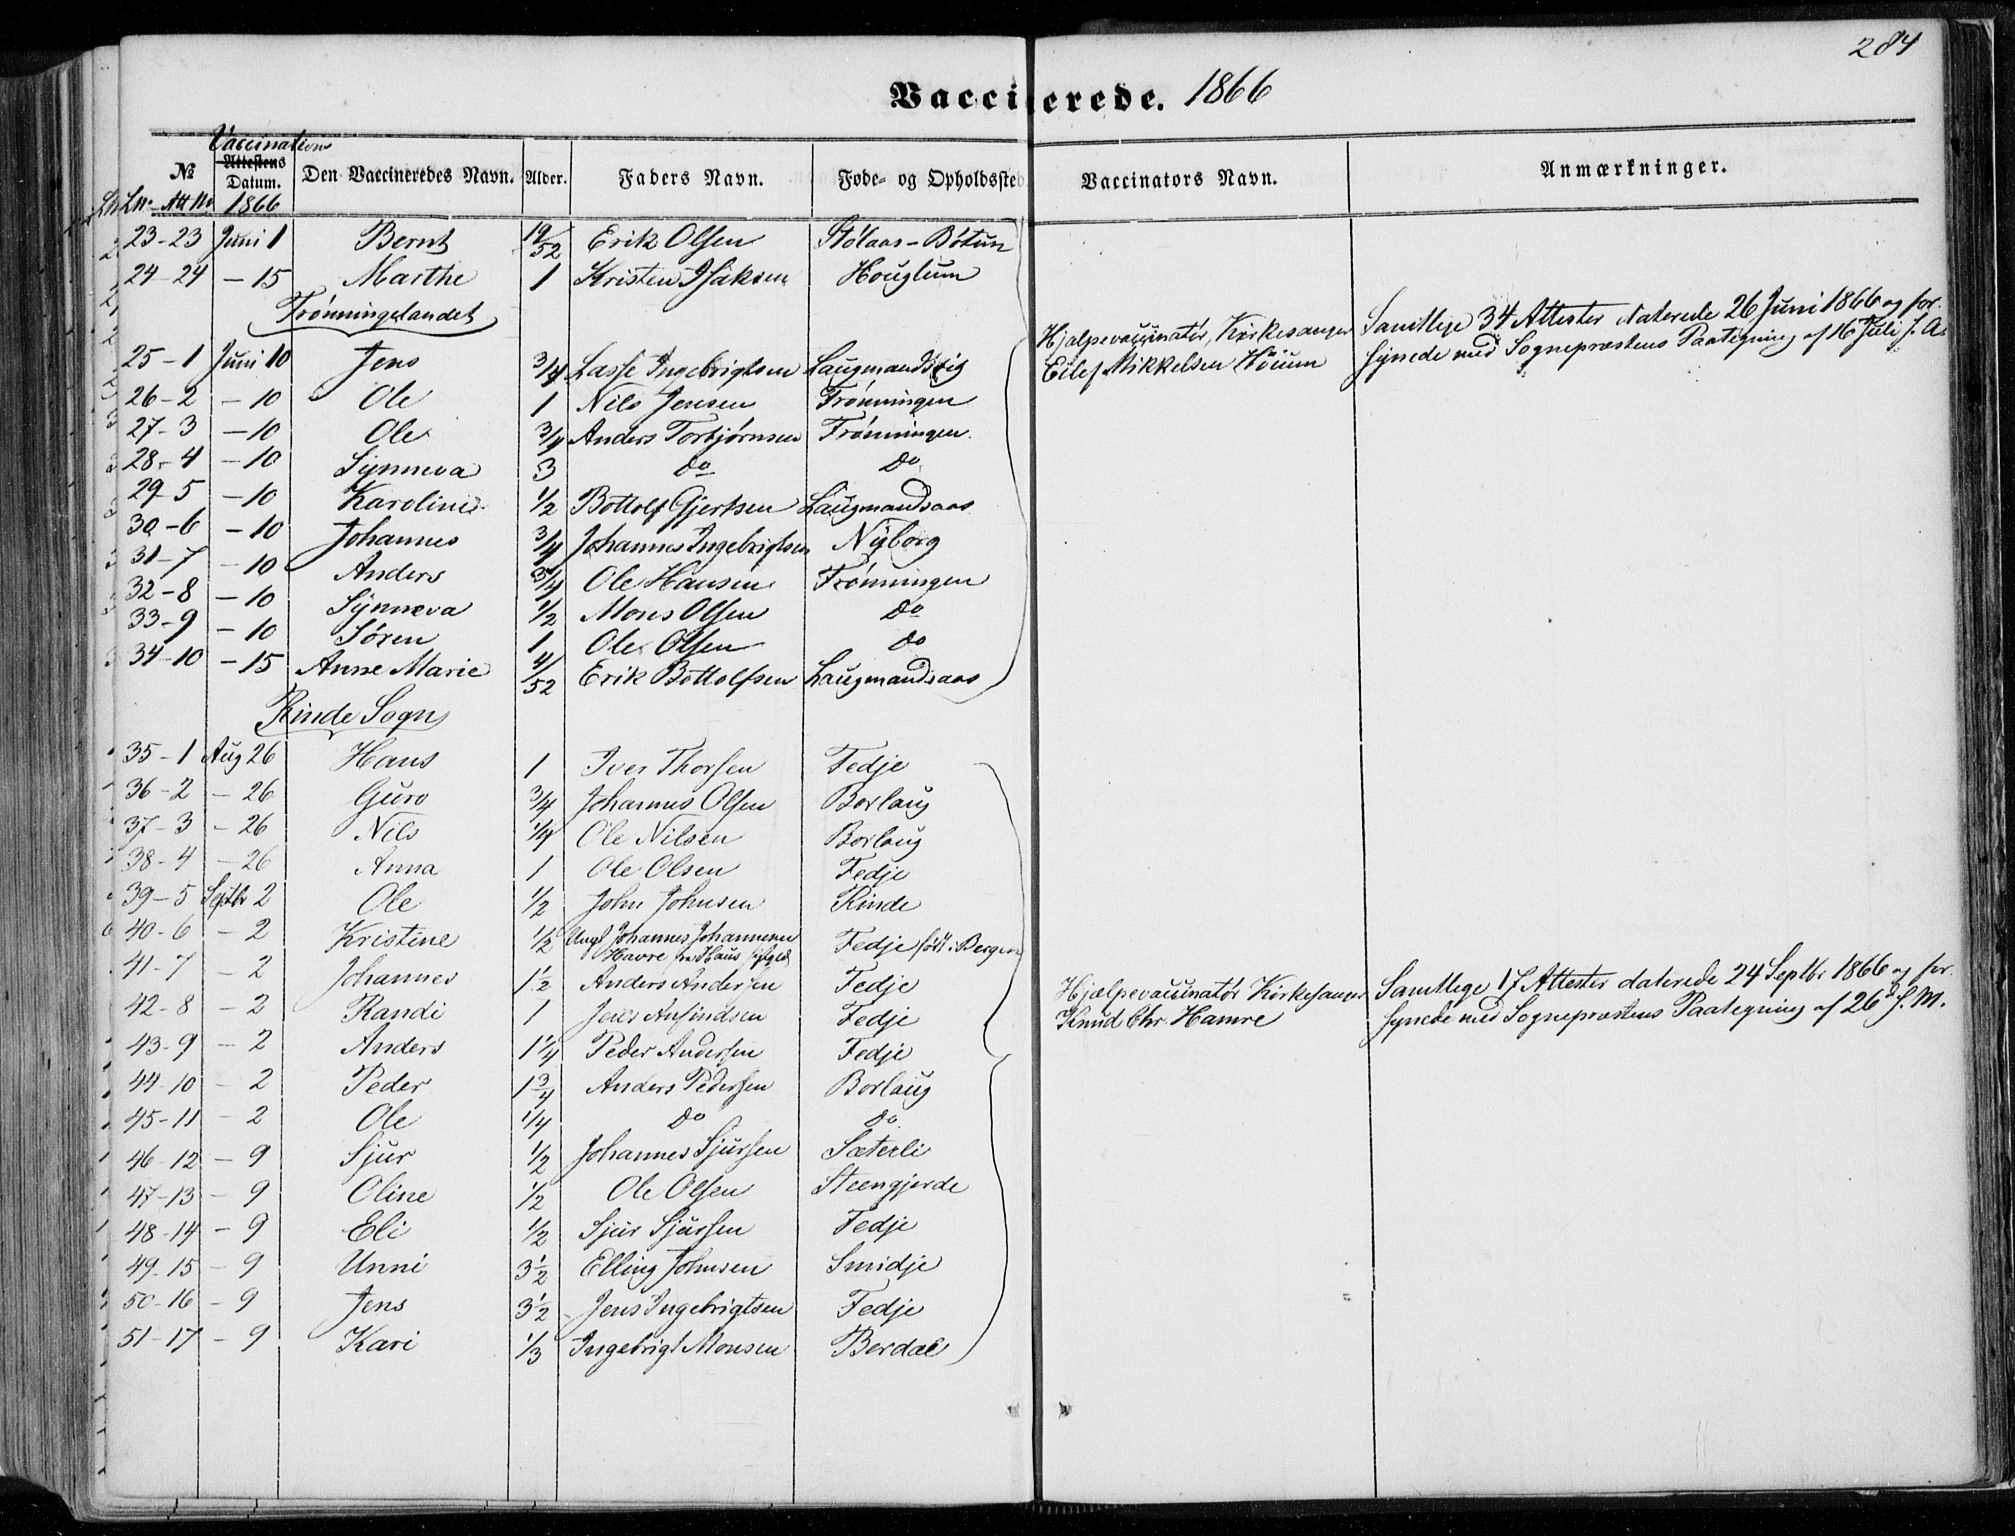 284
Vaccinerede. 1866
Vaccinations
№ Attestens Datum. Den Vaccineredes Navn. Alder. Faders Navn. Føde- og Opholdssted Vaccinators Navn. Anmærkninger.
Ln. Att No 1866
23-23 Juni 1 Bernt 19/52 Erik Olsen Stølaas-Bøtun
24-24 - 15 Marthe 1 Kristen Isaksen Houglum
Frønningelandet
25-1 Juni 10 Jens 3/4 Lasse Ingebrigtsen Laugmandsvig
Hjælpevaccinatør, Kirkesanger Samtlige 34 Attester daterede 26 Juni 1866 og for-
Eilef Mikkelsen Høium synede med Sognepræstens Paategning af 16 Juli s. A.
26-2 - 10 Ole 1 Nils Jensen Frønningen
27-3 - 10 Ole 3/4 Anders Torbjørnsen Frønningen
28-4 - 10 Synneva 3 do do
29-5 - 10 Karoline 1/2 Bottolf Gjertsen Laugmandsaas
30-6 - 10 Johannes 3/4 Johannes Ingebrigtsen Nyborg
31-7 - 10 Anders 3/4 Ole Hansen Frønningen
32-8 - 10 Synneva 1/2 Mons Olsen do
33-9 - 10 Søren 1 Ole Olsen do
34-10 - 15 Anne Marie 4/52 Erik Bottolfsen Laugmandsaas
Rinde Sogn
35-1 Aug 26 Hans 1 Iver Thorsen Fedje
36-2 - 26 Guro 3/4 Johannes Olsen Borlaug
37-3 - 26 Nils 1/4 Ole Nilsen Borlaug
38-4 - 26 Anna 1 Ole Olsen Fedje
39-5 Septbr 2 Ole 1/2 John Johnsen Rinde
40-6 - 2 Kristine 1/2 Ungk Johannes Johannesen Fedje født i Bergen
Havre fra Haus
41-7 - 2 Johannes 1 1/2 Anders Andersen Fedje
Hjælpevaccinatør Kirkesanger Samtlige 17 Attester daterede 24 Septbr 1866 og for-
42-8 - 2 Randi 1 Jens Anfindsen Fedje
Knud Chr. Hamre synede med Sognepræstens Paategning af 26 s. M.
43-9 - 2 Anders 1 1/4 Peder Andersen Fedje
44-10 - 2 Peder 1 3/4 Anders Pedersen Borlaug
45-11 - 2 Ole 1/4 do do
46-12 - 9 Sjur 1/2 Johannes Sjursen Sæterli
47-13 - 9 Oline 1/2 Ole Olsen Steengjerde
48-14 - 9 Eli 1/2 Sjur Sjursen Fedje
49-15 - 9 Unni 3 1/2 Elling Johnsen Smidje
50-16 - 9 Jens 3 1/2 Jens Ingebrigtsen Fedje
51-17 - 9 Kari 1/3 Ingebrigt Monsen Berdal